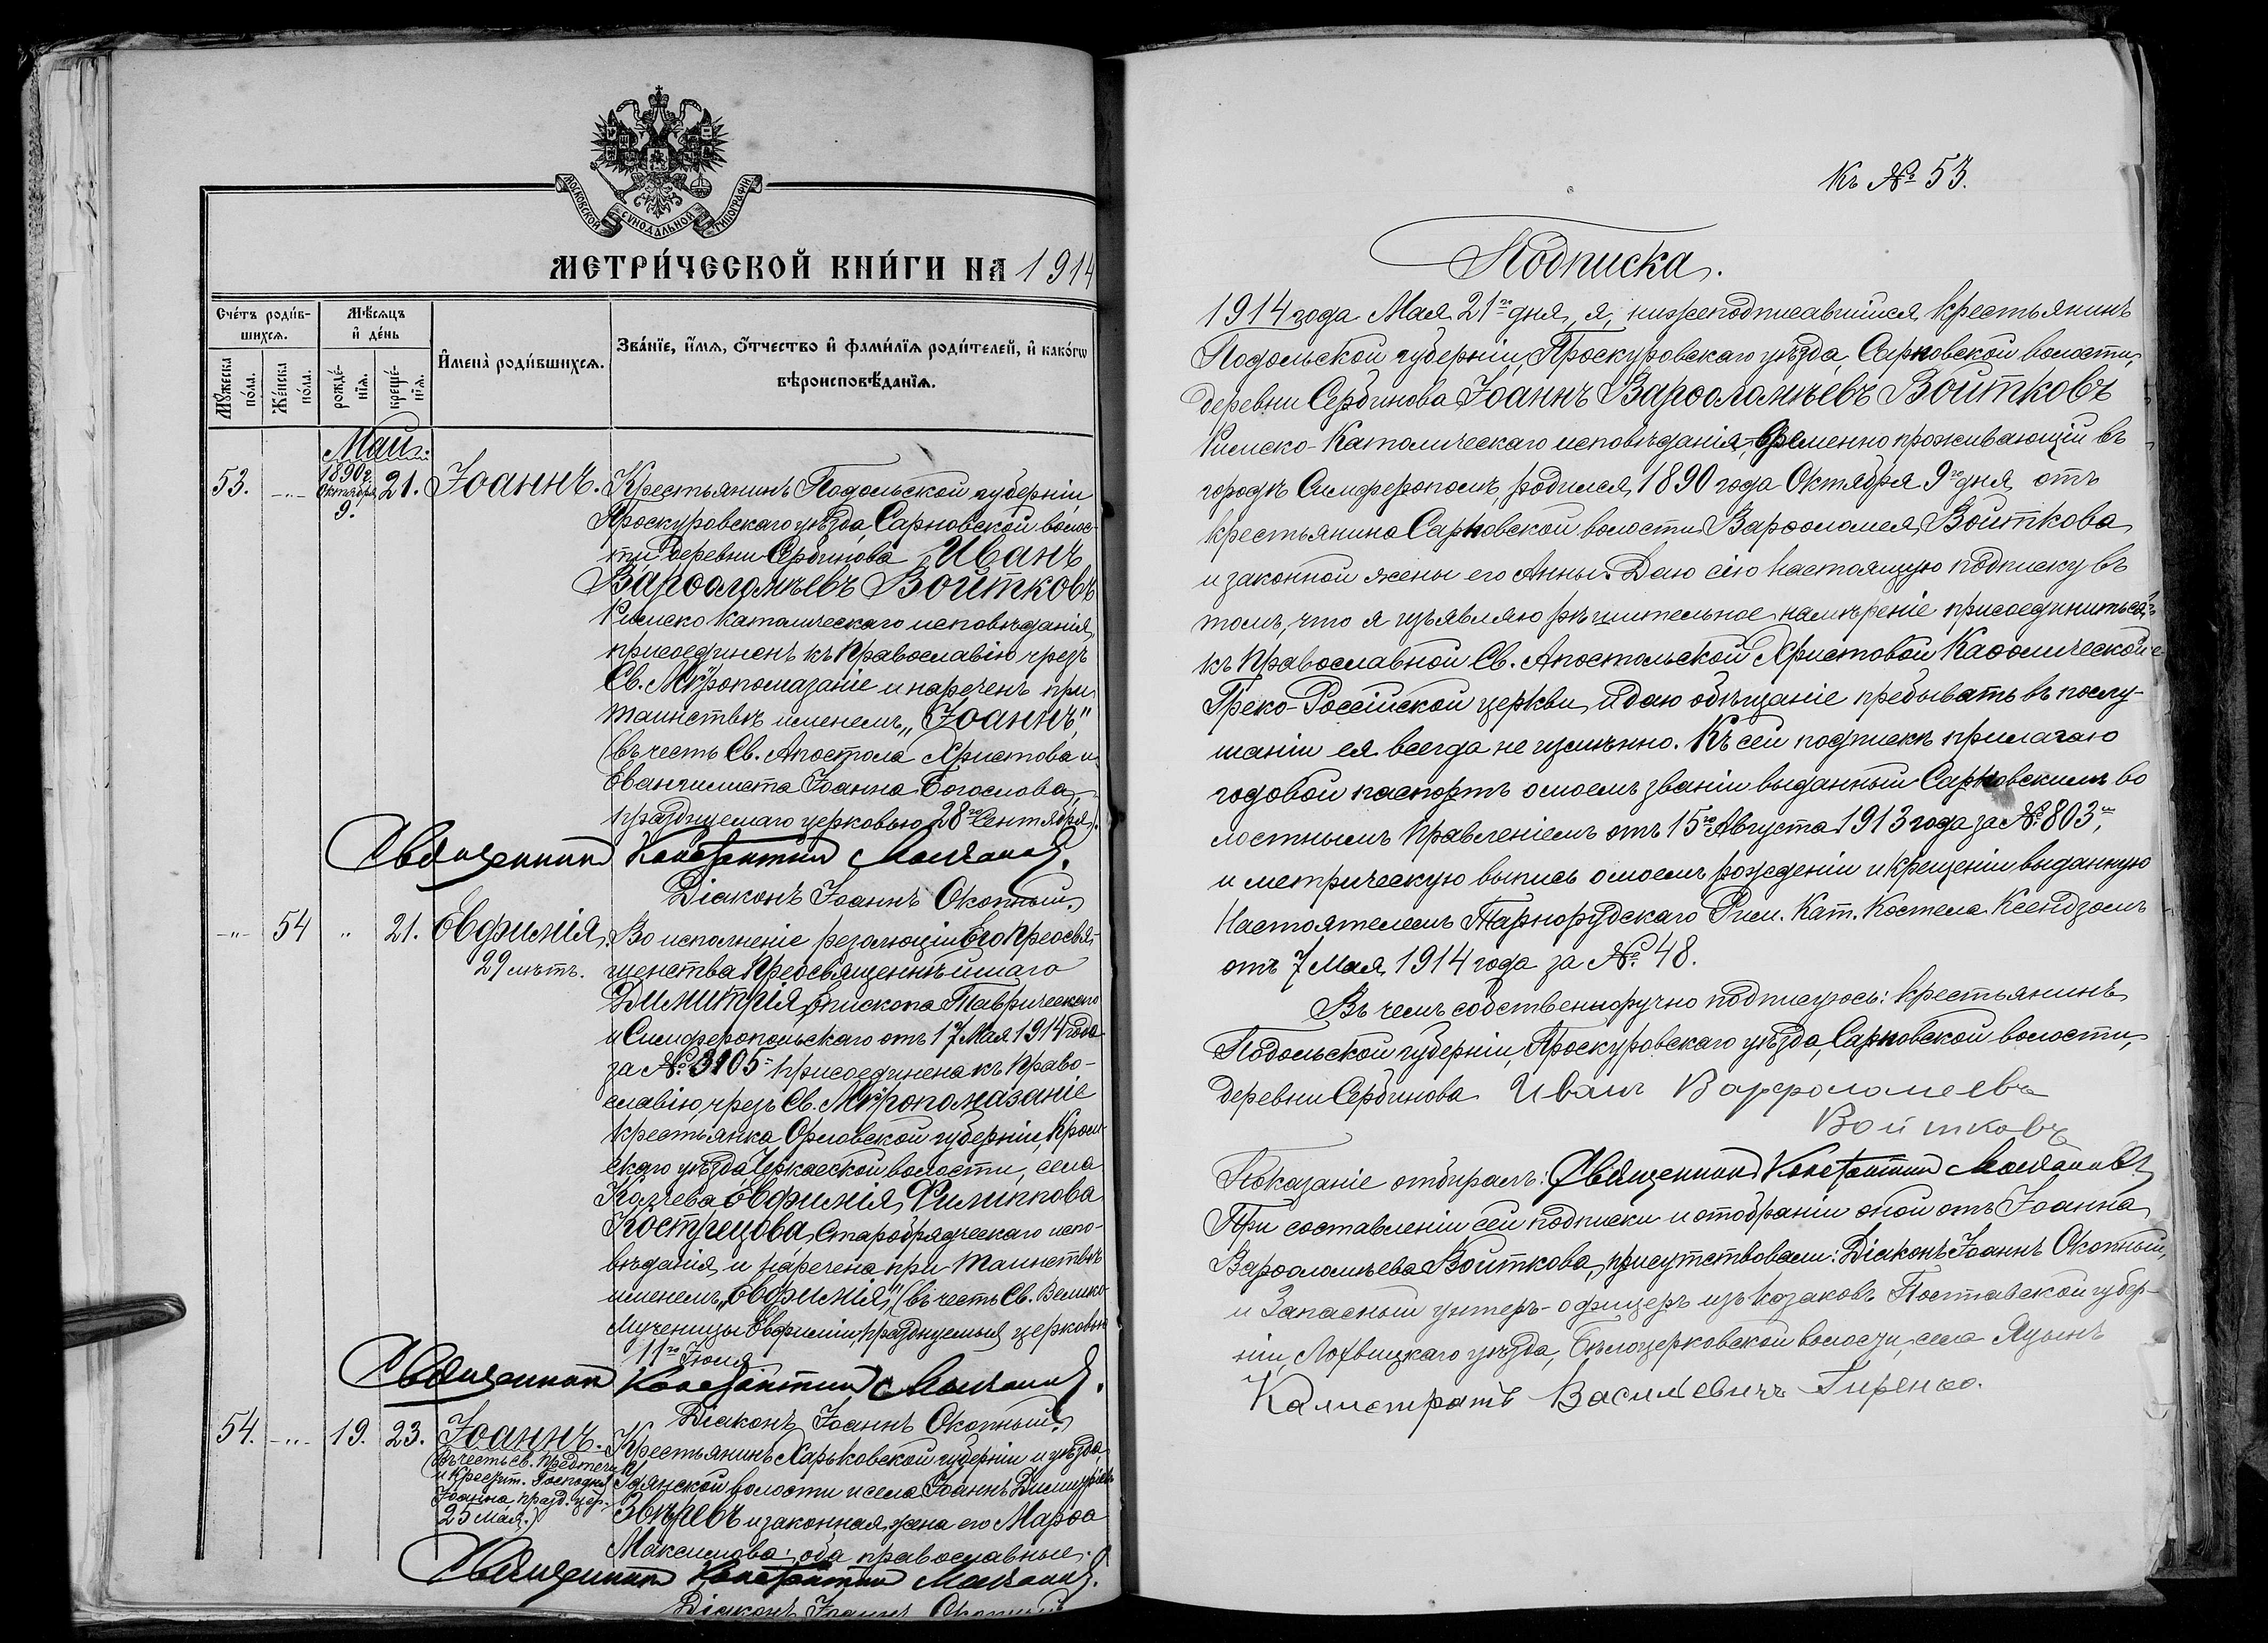 МОСКОВСКОЙ СѴНОДАЛЬНОЙ ТИПОГРАФІИ
МЕТРИ́ЧЕСКОЙ КНИ́ГИ НА 1914
Сче́тъ роди́в-
шихся.
Мѣ́сяцъ
и҆ де́нь
Мꙋ́жеска
по́ла.
Же́нска
по́ла.
рожде́-
нїѧ.
креще́-
нїѧ.
И҆мена̀ роди́вшихсѧ.
Зва́нїе, и҆́мѧ, ѻ҆́тчество и҆ фами́лїѧ роди́телей, и҆ како́гѡ
вѣроисповѣ́данїѧ.
Май.
53. -"- 1890 г. Октября 9. 21. Іоаннъ.
Крестьянинъ Подольской губерніи
Проскуровскаго уѣзда, Сарновской волос-
ти, деревни Сербинова Иванъ
Варѳоломѣевъ Войтковъ
Римско Католическаго исповѣданія,
присоединенъ къ Православію чрезъ
Св. Мѵропомазаніе и нареченъ при
таинствѣ именемъ „Іоаннъ",
(въ честь Св. Апостола Христова и
Евангилиста Іоанна Богослова,
празднуемаго церковью 28го Сентября).
Священникъ Константинъ
Діаконъ Іоаннъ Окопный.
-"- 54 " 21. Евфимія,
29 лѣтъ.
Во исполненіе резолюціи Его Преосвя-
щенства Преосвященнѣйшаго
Димитрія, Епископа Таврическаго
и Симферопольскаго отъ 17 Мая 1914 года
за № 3105 присоединена къ Право-
славію, чрезъ Св. Мѵропомазаніе
крестьянка Орловской губерніи, Кром-
скаго уѣзда, Черкаской волости, села
Казчева Евфимія Филиппова
Кострецова, Старобрядческаго испо-
вѣданія и наречена при таинствѣ
именемъ „Евфимія", (въ честь Св. Велико-
мученицы Евфиміи, празднуемыя церковью
11го Іюля
Священникъ Константинъ
Діаконъ Іоаннъ Окопный.
54. -"- 19. 23. Іоаннъ.
(Въ честь Св. Предтечи
и Крестит. Господня
Іоанна, празд. цер.
25 мая.)
Крестьянинъ Харьковской губерніи и уѣзда,
волости и села Іоаннъ Димитріевъ
Звѣревъ и законная жена его Марѳа
Максимова; оба православные.
Священникъ Константинъ
Діаконъ Іоаннъ Окопный
Къ № 53.
Подписка.
1914 года Мая 21го дня, я, нижеподписавшійся, крестьянинъ
Подольской губерніи, Проскуровскаго уѣзда, Сарновской волости,
деревни Сербинова Іоаннъ Варѳоломѣевъ Войтковъ
Римско-Католическаго исповѣданія, временно проживающій въ
городѣ Симферополѣ, родился 1890 года Октября 9го дня, отъ
крестьянина Сарновской волости Варѳоломея Войткова
и законной жены его Анны. Даю сію настоящую подписку въ
томъ, что я изъявляю рѣшительное намѣреніе присоединиться
къ Православной Св. Апостольской Христовой Каѳолической
Греко-Россійской церкви и даю обѣщаніе пребывать въ послу-
шаніи ея всегда не измѣнно. Къ сей подпискѣ прилагаю
годовой паспортъ о моемъ званіи выданный Сарновскимъ во
лостнымъ Правленіемъ отъ 15го Августа 1913 года за № 803,
и метрическую выпись о моемъ рожденіи и крещеніи выданную
Настоятелемъ Тарнорудскаго Рим. Кат. Костела Ксендзомъ
отъ 7 Мая 1914 года за № 48.
Въ чемъ собственноручно подписуюсь: крестьянинъ
Подольской губерніи, Проскуровскаго уѣзда, Сарновской волости,
деревни Сербинова Иванъ Варфоломеевъ
Войтковъ
Показаніе отбиралъ: Священникъ Константинъ
При составленіи сей подписки и отобраніи оной отъ Іоанна
Варѳоломѣева Войткова, присутствовали: Діаконъ Іоаннъ Окопный,
и Запасный унтеръ-офицеръ изъ козаковъ Полтавской губер-
ніи, Лохвицкаго уѣзда, Бѣлоцерковской волости, села Яцынъ
Калистратъ Василіевичъ Гиренко.